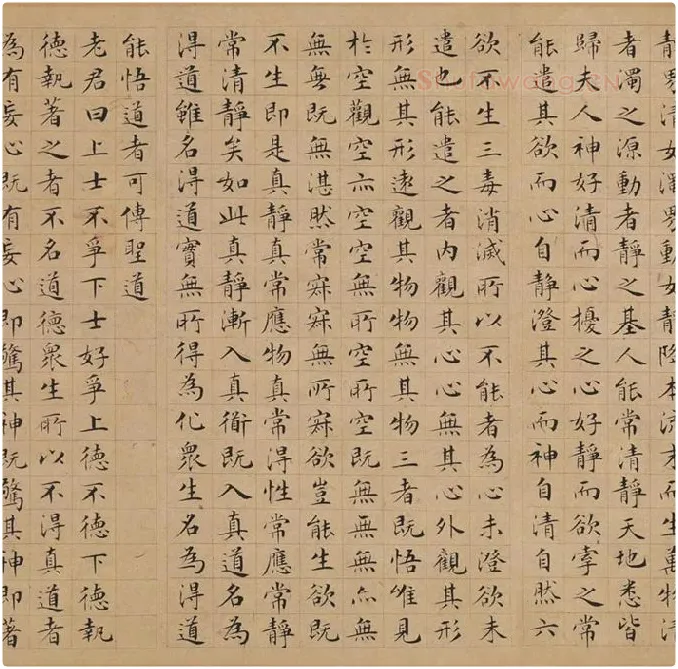 男清女濁男動女靜降本流末而生萬物清
者濁之源動者靜之基人能常清靜天地悉皆
歸夫人神好清而心擾之心好靜而欲牽之常
能遣其欲而心自靜澄其心而神自清自然六
欲不生三毒消滅所以不能者為心未澄欲未
遣也能遣之者內觀其心心無其心外觀其形
形無其形遠觀其物物無其物三者既悟唯見
於空觀空亦空空無所空所空既無無無亦無
無無既無湛然常寂寂無所寂欲豈能生欲既
不生即是真靜真常應物真常得性常應常靜
常清靜矣如此真靜漸入真衜既入真道名為
得道雖名得道實無所得為化眾生名為得道
能悟道者可傳聖道
老君曰上士不爭下士好爭上德不德下德執
德執著之者不名道德眾生所以不得真道者
為有妄心既有妄心即驚其神既驚其神即著